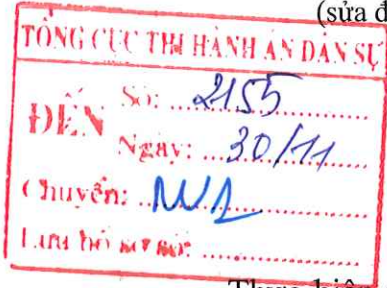 (sửa đ
TỔNG CỤC THI HÀNH ÁN DÂN SỰ
ĐẾN
Số: ...2155...
Ngày: ...30/11...
Chuyển: ...
Lưu hồ sơ số: ...